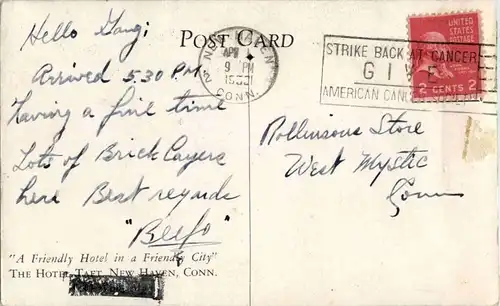 Hello
POST CARD
NEW HAVEN
APR
9 PM
CONN.
STRIKE BACK AT CANCER
GIVE
AMERICAN CANCER SOCIETY
UNITED
STATES
POSTAGE
2 CENTS 2
Arrived 5:30 P.M.
Having a fine time
Lots of Brick Layers
here Best regards
Rollinsons Store
West Mystic
Conn
"A Friendly Hotel in a Friendly City"
THE HOTEL TAFT, NEW HAVEN, CONN.